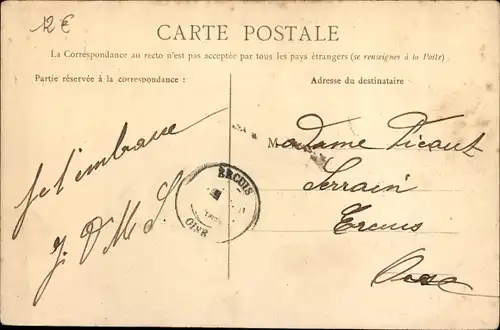 12 €
CARTE POSTALE
La Correspondance au recto n'est pas acceptée par tous les pays étrangers (se renseigner à la Poste).
Partie réservée à la correspondance :
Adresse du destinataire
Je t'embrasse
J. D M S.
ERCUIS
OISE
Madame Picaut
Terrain
Ercuis
Oise